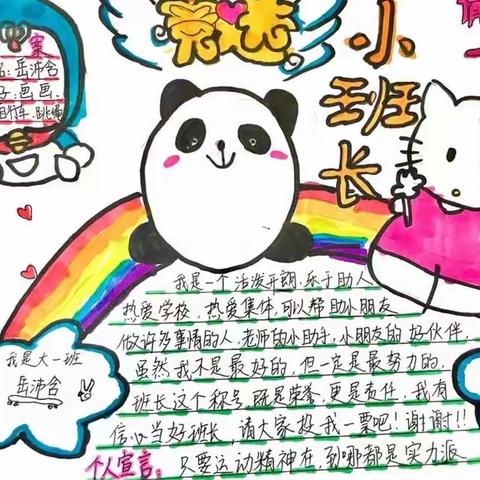 案
名:岳沛含
子:画画.
自行车,跳绳
竞选
小班长
我是一个活泼开朗,乐于助人
热爱学校,热爱集体,可以帮助小朋友
做许多事情的人,老师的小助手,小朋友的好伙伴,
虽然我不是最好的,但一定是最努力的.
班长这个称号,既是荣誉,更是责任,我有
信心当好班长,请大家投我一票吧!谢谢!!
个人宣言:只要运动精神在,到哪都是实力派
我是大一班
岳沛含